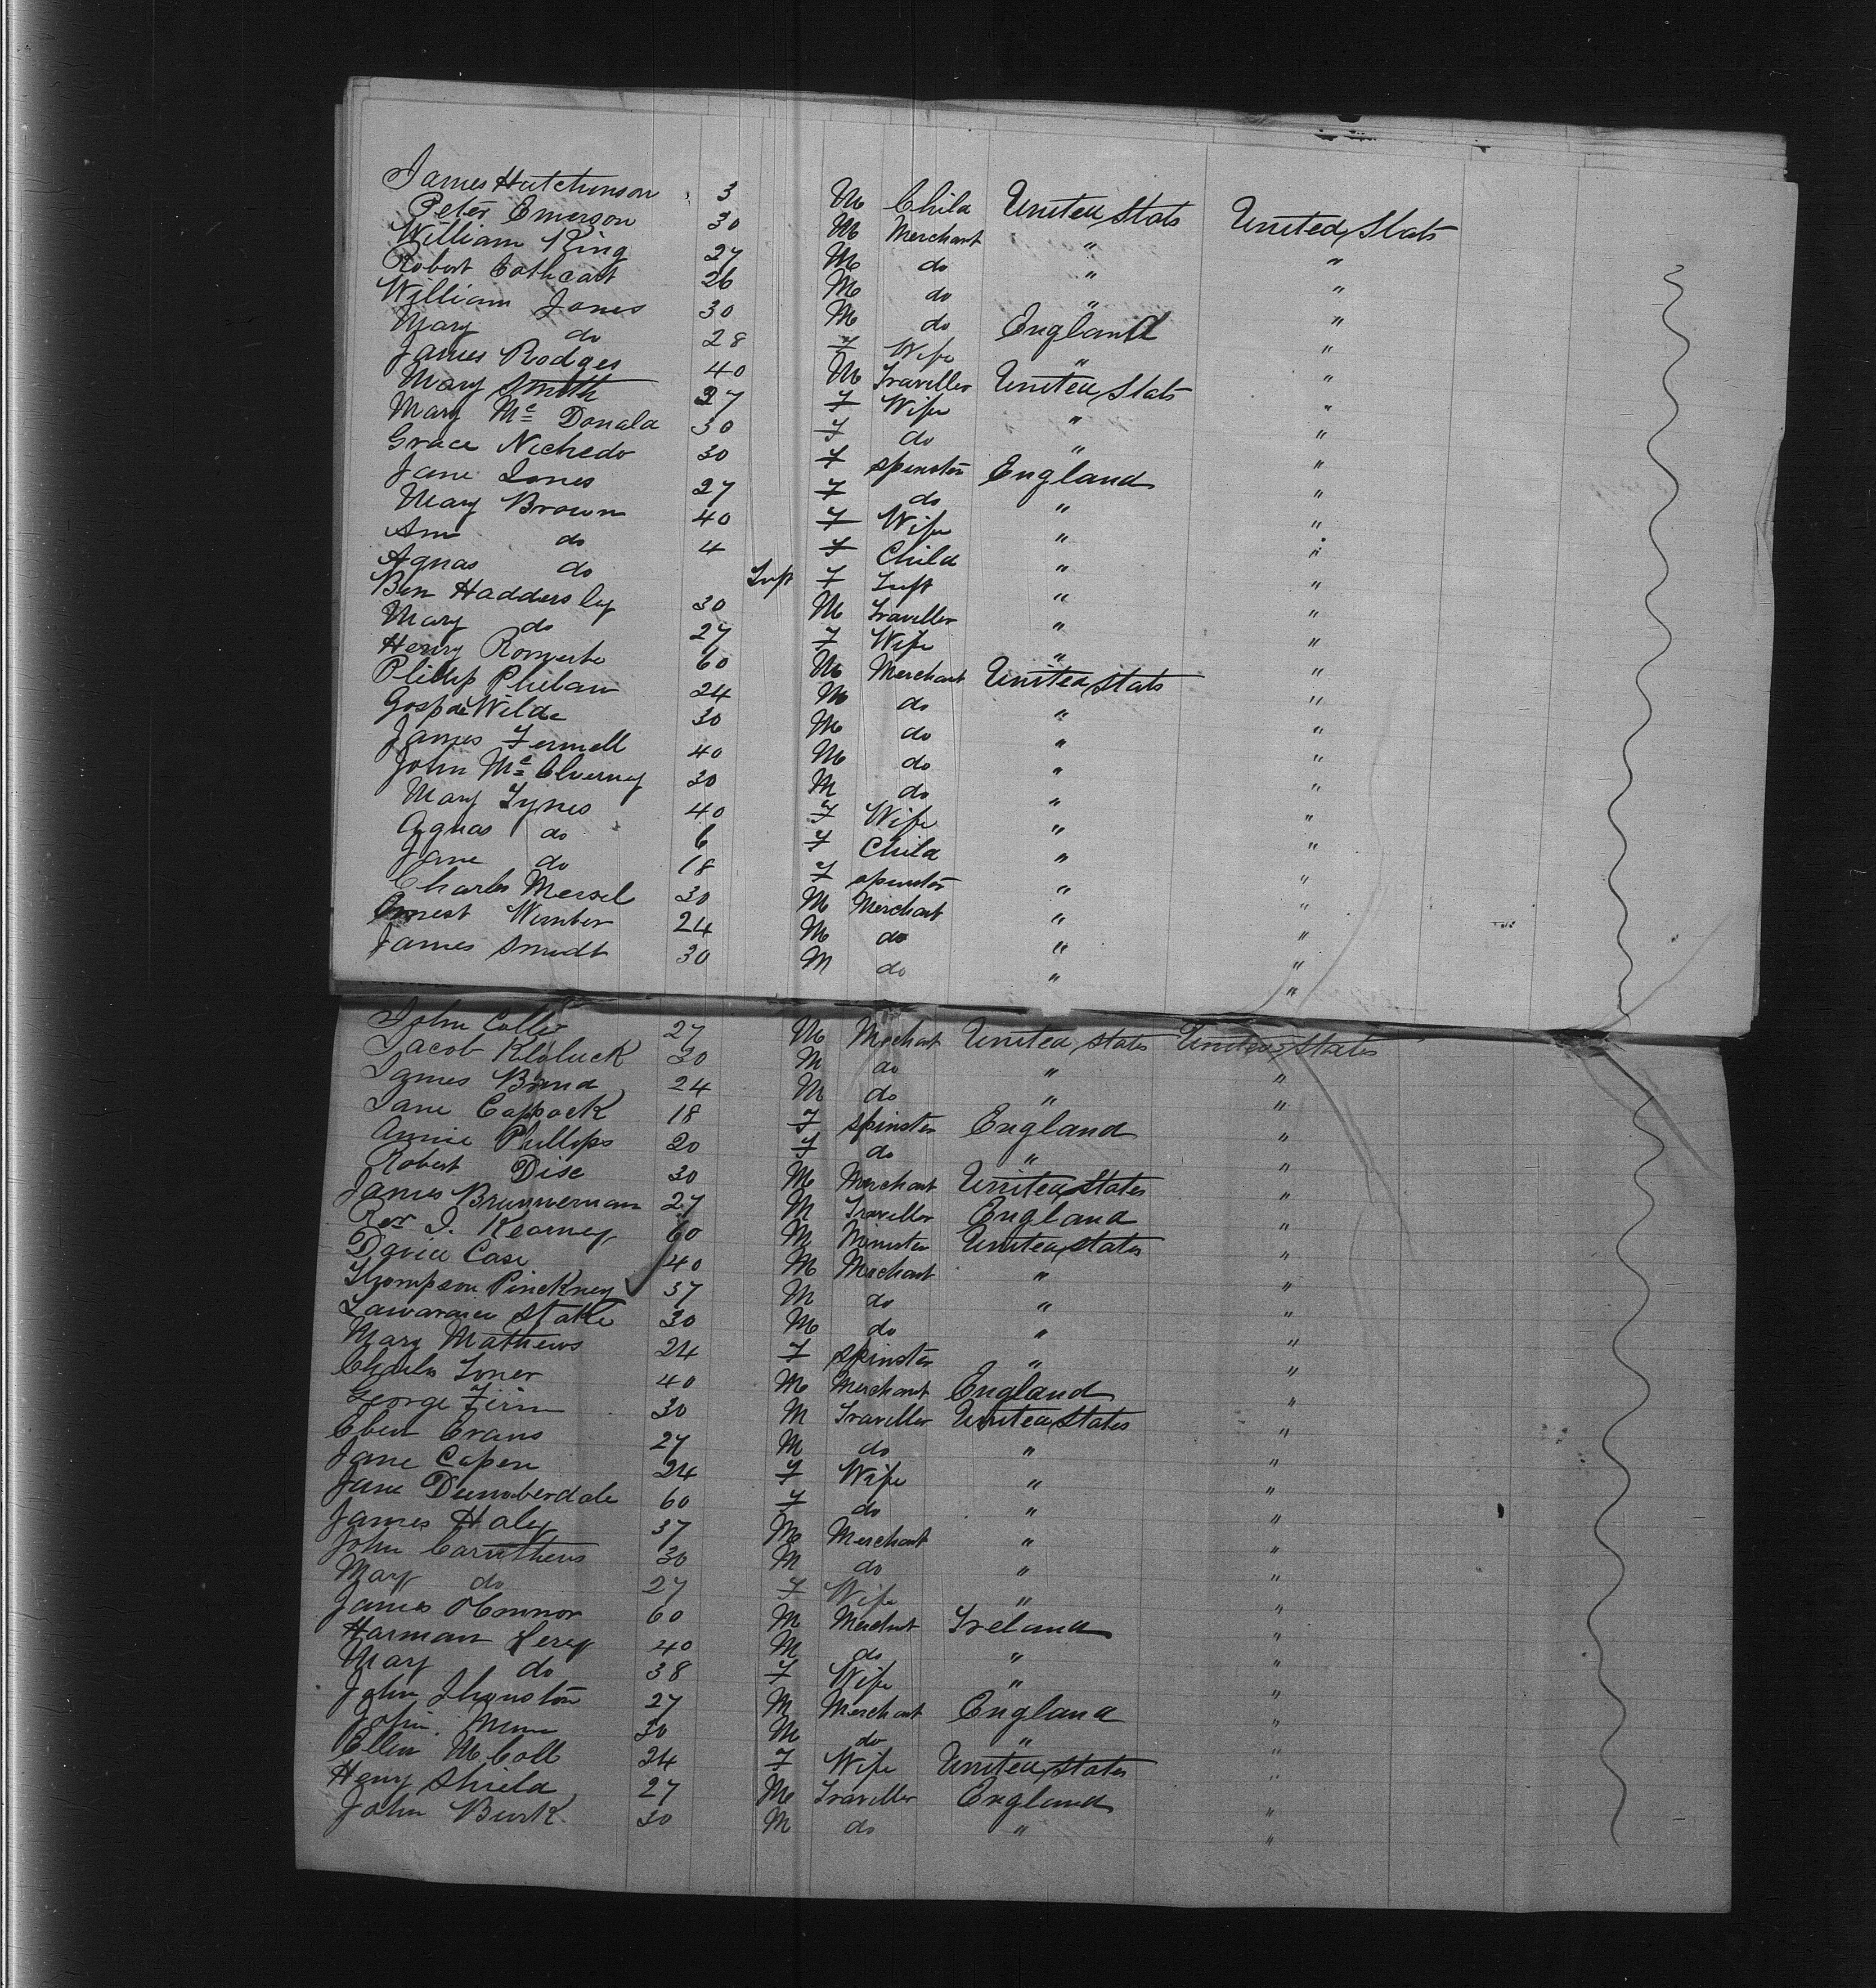 James Hutchinson 3 M Child United Stats United Stats
Peter Emerson 30 M Merchant " "
William King 27 M do " "
Robert Cathcart 26 M do " "
William Jones 30 M do England "
Mary do 28 F Wife " "
James Rodges 40 M Traveller United Stats "
Mary Smith 27 F Wife " "
Mary Mc Donald 30 F do " "
Grace 30 F Spinster England "
Jane Jones 27 F do " "
Mary Brown 40 F Wife " "
Ann do 4 F Child " "
Agnas do Inft F Inft " "
Ben Haddersley 30 M Traveller " "
Mary do 27 F Wife " "
Henry 60 M Merchant United Stats "
Phillip Phelan 24 M do " "
Wilde 30 M do " "
James 40 M do " "
John Mc 30 M do " "
Mary Tynes 40 F Wife " "
Agnas do 6 F Child " "
Jane do 18 F spinster " "
Charles Mersel 30 M Merchant " "
Ernest 24 M do " "
James Smidt 30 M do " "
John 27 M Merchant United States United States
Jacob 30 M do " "
James 24 M do " "
Jane Cappack 18 F Spinster England "
Annie Phillips 20 F do " "
Robert Dise 30 M Merchant United States "
James Brunnerman 27 M Traveller England "
Rev J. Kearney 60 M Minister United States "
David Case 40 M Merchant " "
Thompson Pinckney 37 M do " "
30 M do " "
Mary Mathews 24 F Spinster " "
Charles 40 M Merchant England "
George 30 M Traveller United States "
Evans 27 M do " "
Jane Capen 24 F Wife " "
Jane 60 F do " "
James Haley 37 M Merchant " "
John Caruthers 30 M do " "
Mary do 27 F Wife " "
James OConnor 60 M Merchant Ireland "
Harman 40 M do " "
Mary do 38 F Wife " "
John 27 M Merchant England "
John 30 M do " "
Ellen McColl 24 F Wife United States "
Henry Shield 27 M Traveller England "
John Burk 30 M do " "